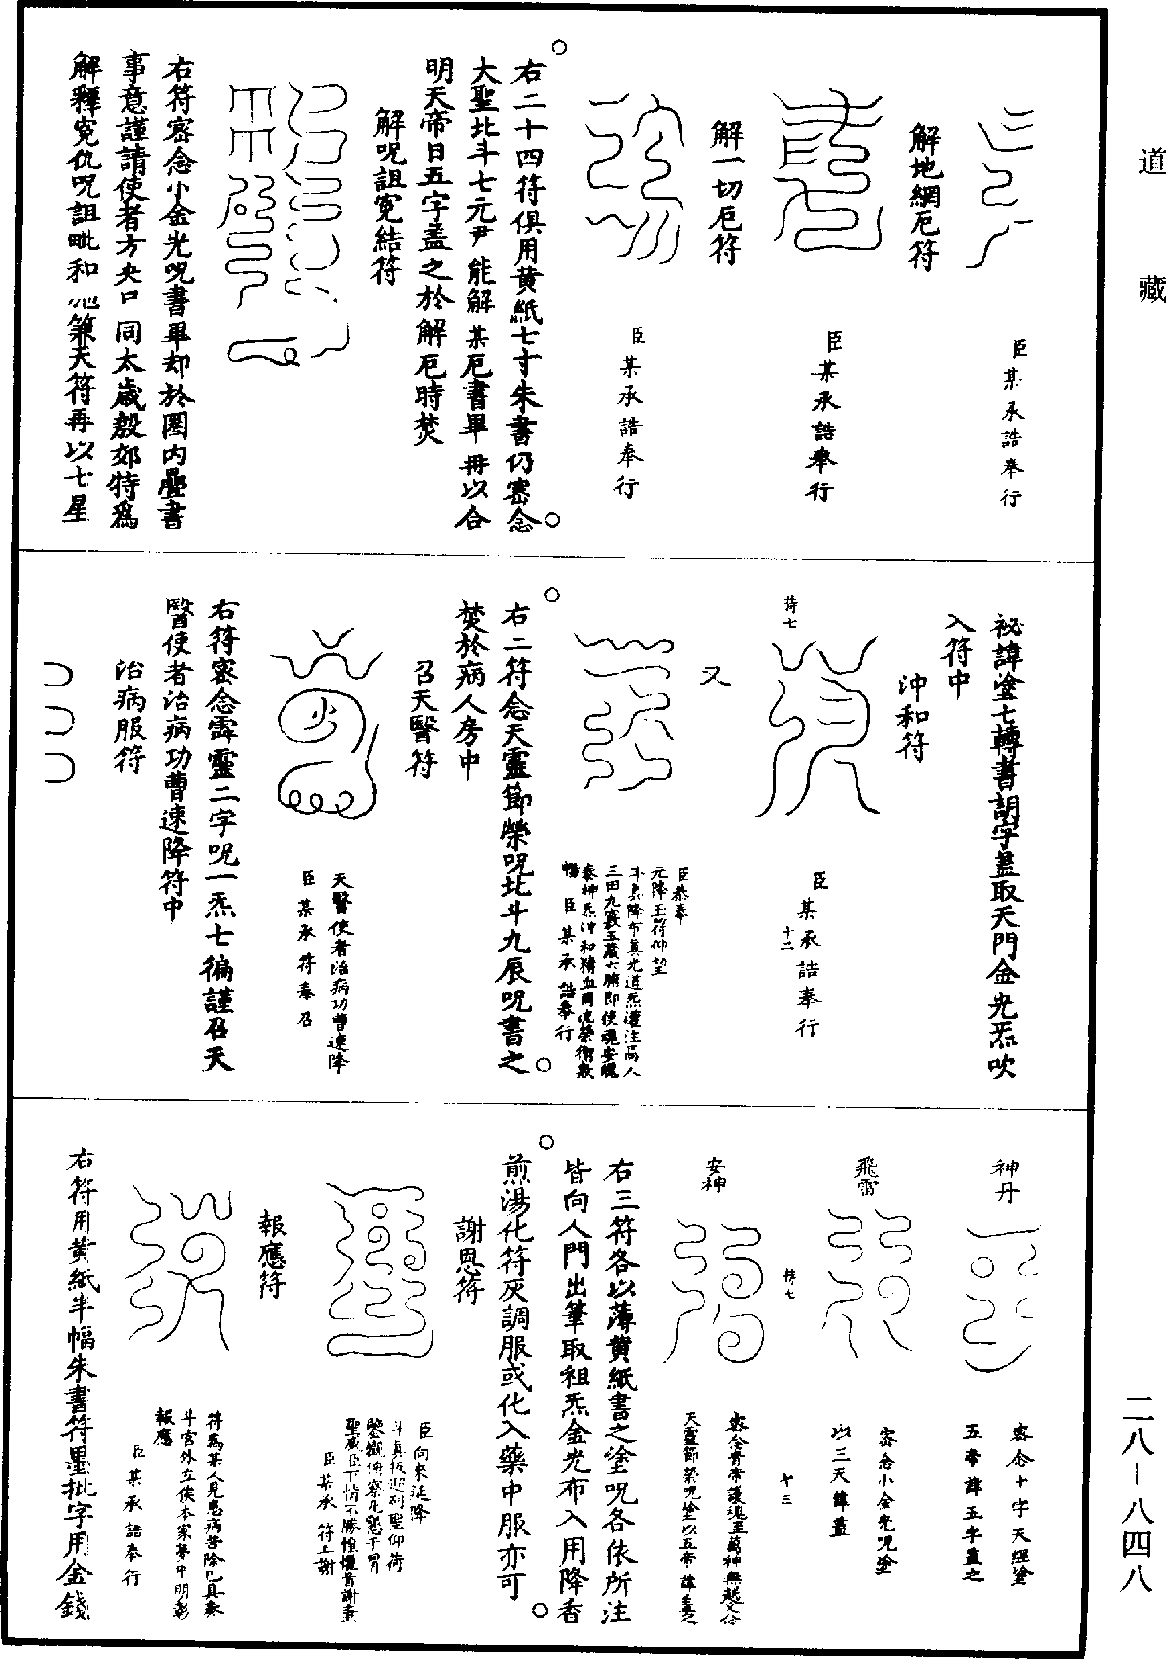 道藏
臣某承誥奉行
解地網厄符
臣某承誥奉行
解一切厄符
臣某承誥奉行
右二十四符俱用黄紙七寸朱書仍密念
大聖北斗七元尹能解某厄書畢再以合
明天帝日五字盖之於解厄時焚
解呪詛寃結符
右符密念小金光呪書畢却於圈内疊書
事意謹請使者方央口同太歲殷郊特爲
解釋寃仇呪詛毗和兼天符再以七星
祕諱塗七轉書詶字盖取天門金光炁吹
入符中
沖和符
臣某承誥奉行
十二
蒋七
又
臣恭奉
元降玉符仰望
斗真降布真光道炁灌注爲人
三田九竅五藏六腑即使魂安魄
臣某承誥奉行
右二符念天靈節榮呪北斗九辰呪書之
焚於病人房中
召天醫符
天醫使者治病功曹速降
臣某承符奉召
右符密念霹靈二字呪一炁七徧謹召天
醫使者治病功曹速降符中
治病服符
神丹
密念十字天經塗
五帝諱五字盖之
飛雷
密念小金光呪塗
以三天諱蓋
十三
安神
天靈節榮呪塗以五帝諱盖之
右三符各以薄黄紙書之塗呪各依所注
皆向人門出筆取祖炁金光布入用降香
煎湯化符灰調服或化入藥中服亦可
謝恩符
臣向來延降
斗真扳迎列聖仰荷
臣某承符上謝
報應符
符爲某人見患病苦除已具奏
斗宮外立俟本家夢中明彰
報應
臣某承誥奉行
右符用黄紙半幅朱書符墨批字用金錢
二八—八四八